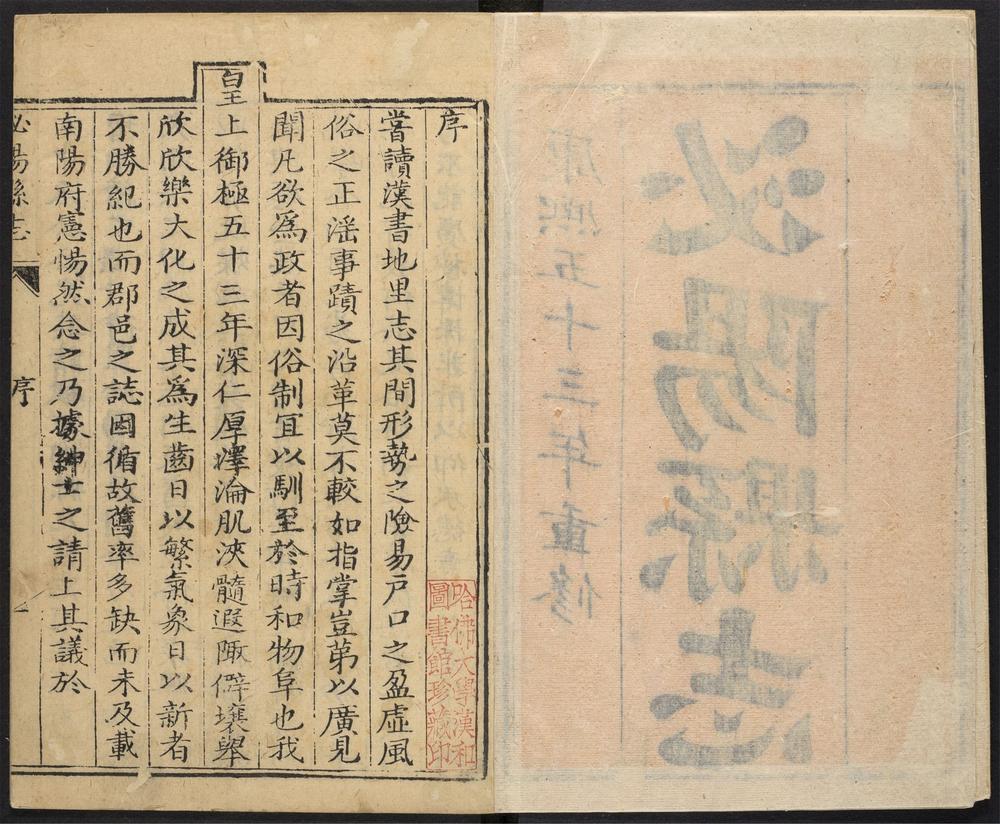 康熙五十三年重修
泌陽縣志
序
嘗讀漢書地里志其間形勢之險易戶口之盈虛風
俗之正滛事蹟之沿革莫不較如指掌豈第以廣見
聞凡欲爲政者因俗制宜以馴至於時和物阜也我
皇上御極五十三年深仁厚澤淪肌浹髓遐陬僻壤舉
欣欣樂大化之成其爲生齒日以繁氣象日以新者
不勝紀也而郡邑之誌因循故舊率多缺而未及載
南陽府憲惕然念之乃據紳士之請上其議於
泌陽縣志 序 一
哈佛大學漢和
圖書館珍藏印